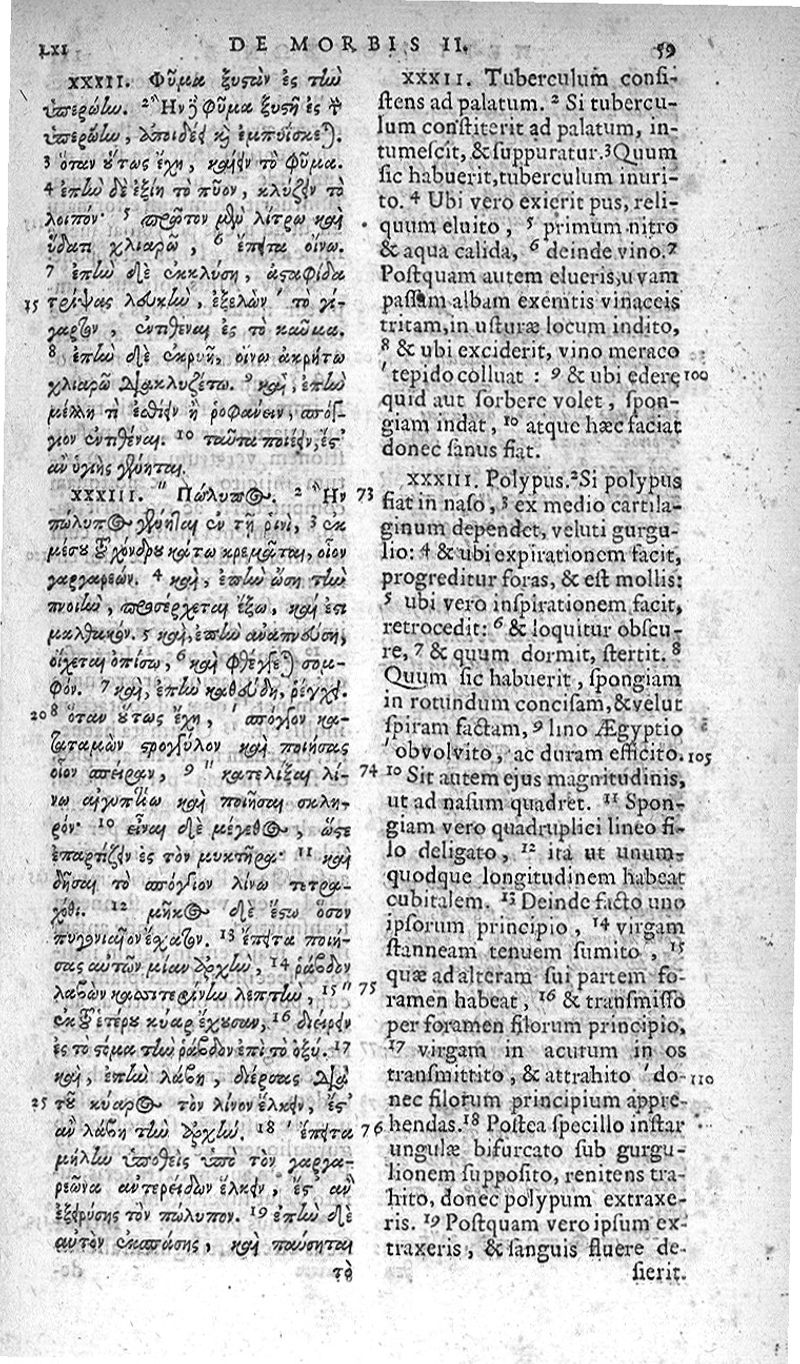 LXI DE MORBIS II. 59
XXXII. Φῦμα ξυστὸν ἐς τὴν
ὑπερῴην. 2 Ἢν δὲ φῦμα ξυστῇ ἐς τ
ὑπερῴην, ἀποιδέει καὶ ἐμπυΐσκεται.
3 ὅταν οὕτως ἔχῃ, καίειν τὸ φῦμα.
4 ἐπὴν δὲ ἐξίῃ τὸ πῦον, κλύζειν τὸ
λοιπόν· 5 πρῶτον μὲν λίτρῳ καὶ
ὕδατι χλιαρῷ, 6 ἔπειτα οἴνῳ.
7 ἐπὴν δὲ ἐκκλύσῃ, ἀσταφίδα
15 τρίψας λευκὴν, ἐξελὼν ʹ τὸ γί-
γαρτον, ἐντιθέναι ἐς τὸ καῦμα.
8 ἐπὴν δὲ ἐκρυῇ, οἴνῳ ἀκρήτῳ
χλιαρῷ διακλυζέτω. 9 καὶ, ἐπὴν
μέλλῃ τὶ ἐσθίειν ἢ ῥοφάνειν, σπόγ-
γιον ἐντιθέναι. 10 ταῦτα ποιέειν, ἔστ᾽
ἂν ὑγιὴς γένηται.
XXXIII. " Πώλυπος. 2 Ἢν 73
πώλυπος γένηται ἐν τῇ ῥινὶ, 3 ἐκ
μέσου τοῦ χόνδρου κάτω κρεμᾶται, οἷον
γαργαρεών. 4 καὶ, ἐπὴν ὤσῃ τὴν
πνοιὴν, προσέρχεται ἔξω, καὶ ἔστι
μαλθακόν. 5 καὶ, ἐπὴν ἀναπνεύσῃ,
οἴχεται ὀπίσω, 6 καὶ φθέγγεται σομ-
φόν. 7 καὶ, ἐπὴν καθεύδῃ, ῥέγχει.
20 8 ὅταν οὕτως ἔχῃ, ʹ σπόγγον κα-
ταταμὼν στρογγύλον καὶ ποιήσας
οἷον σπεῖραν, 9 " κατελίξαι λί- 74
νῳ αἰγυπτίῳ καὶ ποιῆσαι σκλη-
ρόν· 10 εἶναι δὲ μέγεθος, ὥστε
ἐπαρτίζειν ἐς τὸν μυκτῆρα· 11 καὶ
δῆσαι τὸ σπόγγιον λίνῳ τετρα-
χόθι. 12 μῆκος δὲ ἔστω ὅσον
πυγονιαῖον ἕκαστον. 13 ἔπειτα ποιή-
σας αὐτῶν μίαν ἀρχὴν, 14 ῥάβδον
λαβὼν κασσιτερίνην λεπτὴν, 15 " 75
ἐκ τοῦ ἑτέρου κύαρ ἔχουσαν, 16 διείρειν
ἐς τὸ στόμα τὴν ῥάβδον ἐπὶ τὸ ὀξύ. 17
καὶ, ἐπὴν λάβῃ, διέρσας διὰ
25 τοῦ κύαρος τὸν λίνον ἕλκειν, ἔστ᾽
ἂν λάβῃ τὴν ἀρχήν. 18 ʹ ἔπειτα 76
μήλην ὑποθεὶς ὑπὸ τὸν γαργα-
ρεῶνα ἀντερείδων ἕλκειν, ἔστ᾽ ἂν
ἐξειρύσῃς τὸν πώλυπον. 19 ἐπὴν δὲ
αὐτὸν ἐκσπάσῃς, καὶ παύσηται
τὸ
XXXII. Tuberculum consi-
stens ad palatum. 2 Si tubercu-
lum constiterit ad palatum, in-
tumescit, & suppuratur. 3 Quum
sic habuerit, tuberculum inuri-
to. 4 Ubi vero exierit pus, reli-
quum eluito, 5 primum nitro
& aqua calida, 6 deinde vino. 7
Postquam autem elueris, uvam
passam albam exemtis vinaceis
tritam, in usturæ locum indito,
8 & ubi exciderit, vino meraco
ʹ tepido colluat : 9 & ubi edere 100
quid aut sorbere volet, spon-
giam indat, 10 atque hæc faciat
donec sanus fiat.
XXXIII. Polypus. 2 Si polypus
fiat in naso, 3 ex medio cartila-
ginum dependet, veluti gurgu-
lio: 4 & ubi expirationem facit,
progreditur foras, & est mollis:
5 ubi vero inspirationem facit,
retrocedit: 6 & loquitur obscu-
re, 7 & quum dormit, stertit. 8
Quum sic habuerit, spongiam
in rotundum concisam, & velut
spiram factam, 9 lino Ægyptio
ʹ obvolvito, ac duram efficito. 105
10 Sit autem ejus magnitudinis,
ut ad nasum quadret. 11 Spon-
giam vero quadruplici lineo fi-
lo deligato, 12 ita ut unum-
quodque longitudinem habeat
cubitalem. 13 Deinde facto uno
ipsorum principio, 14 virgam
stanneam tenuem sumito, 15
quæ ad alteram sui partem fo-
ramen habeat, 16 & transmisso
per foramen filorum principio,
17 virgam in acutum in os
transmittito, & attrahito ʹ do- 110
nec filorum principium appre-
hendas. 18 Postea specillo instar
ungulæ bifurcato sub gurgu-
lionem supposito, renitens tra-
hito, donec polypum extraxe-
ris. 19 Postquam vero ipsum ex-
traxeris, & sanguis fluere de-
sierit.